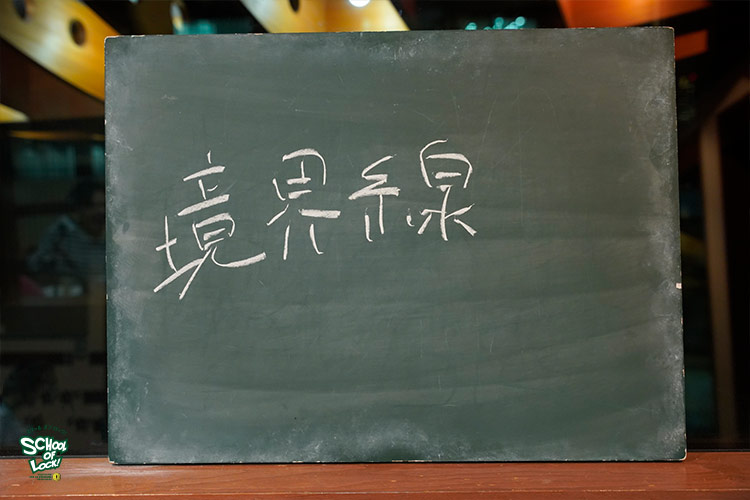 境界線
SCHOOL
OF
LOCK!